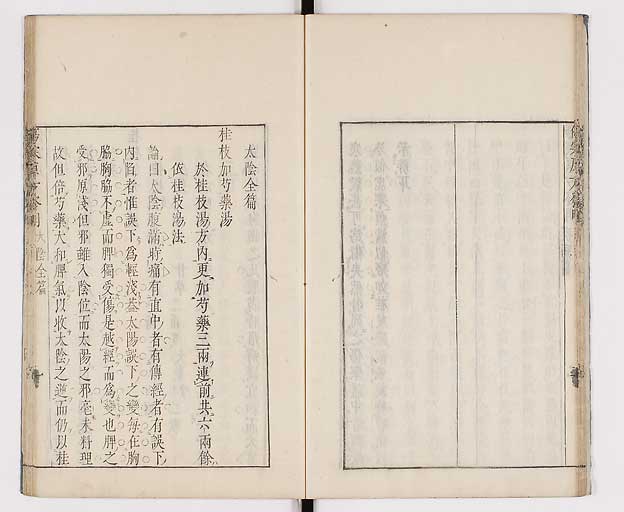 太陰全篇
桂枝加芍藥湯
於桂枝湯方內更加芍藥三兩連前共六兩餘
依桂枝湯法
論曰太陰腹滿時痛有直中者有傳經者有誤下
內陷者惟誤下為輕淺蓋太陽誤下之變每在胸
脇胸脇不虛而脾獨受傷是越經而為變也脾之
受邪原淺但邪雖入陰位而太陽之邪毫未料理
故但倍芍藥大和脾氣以收太陰之逆而仍以桂
太陰全篇